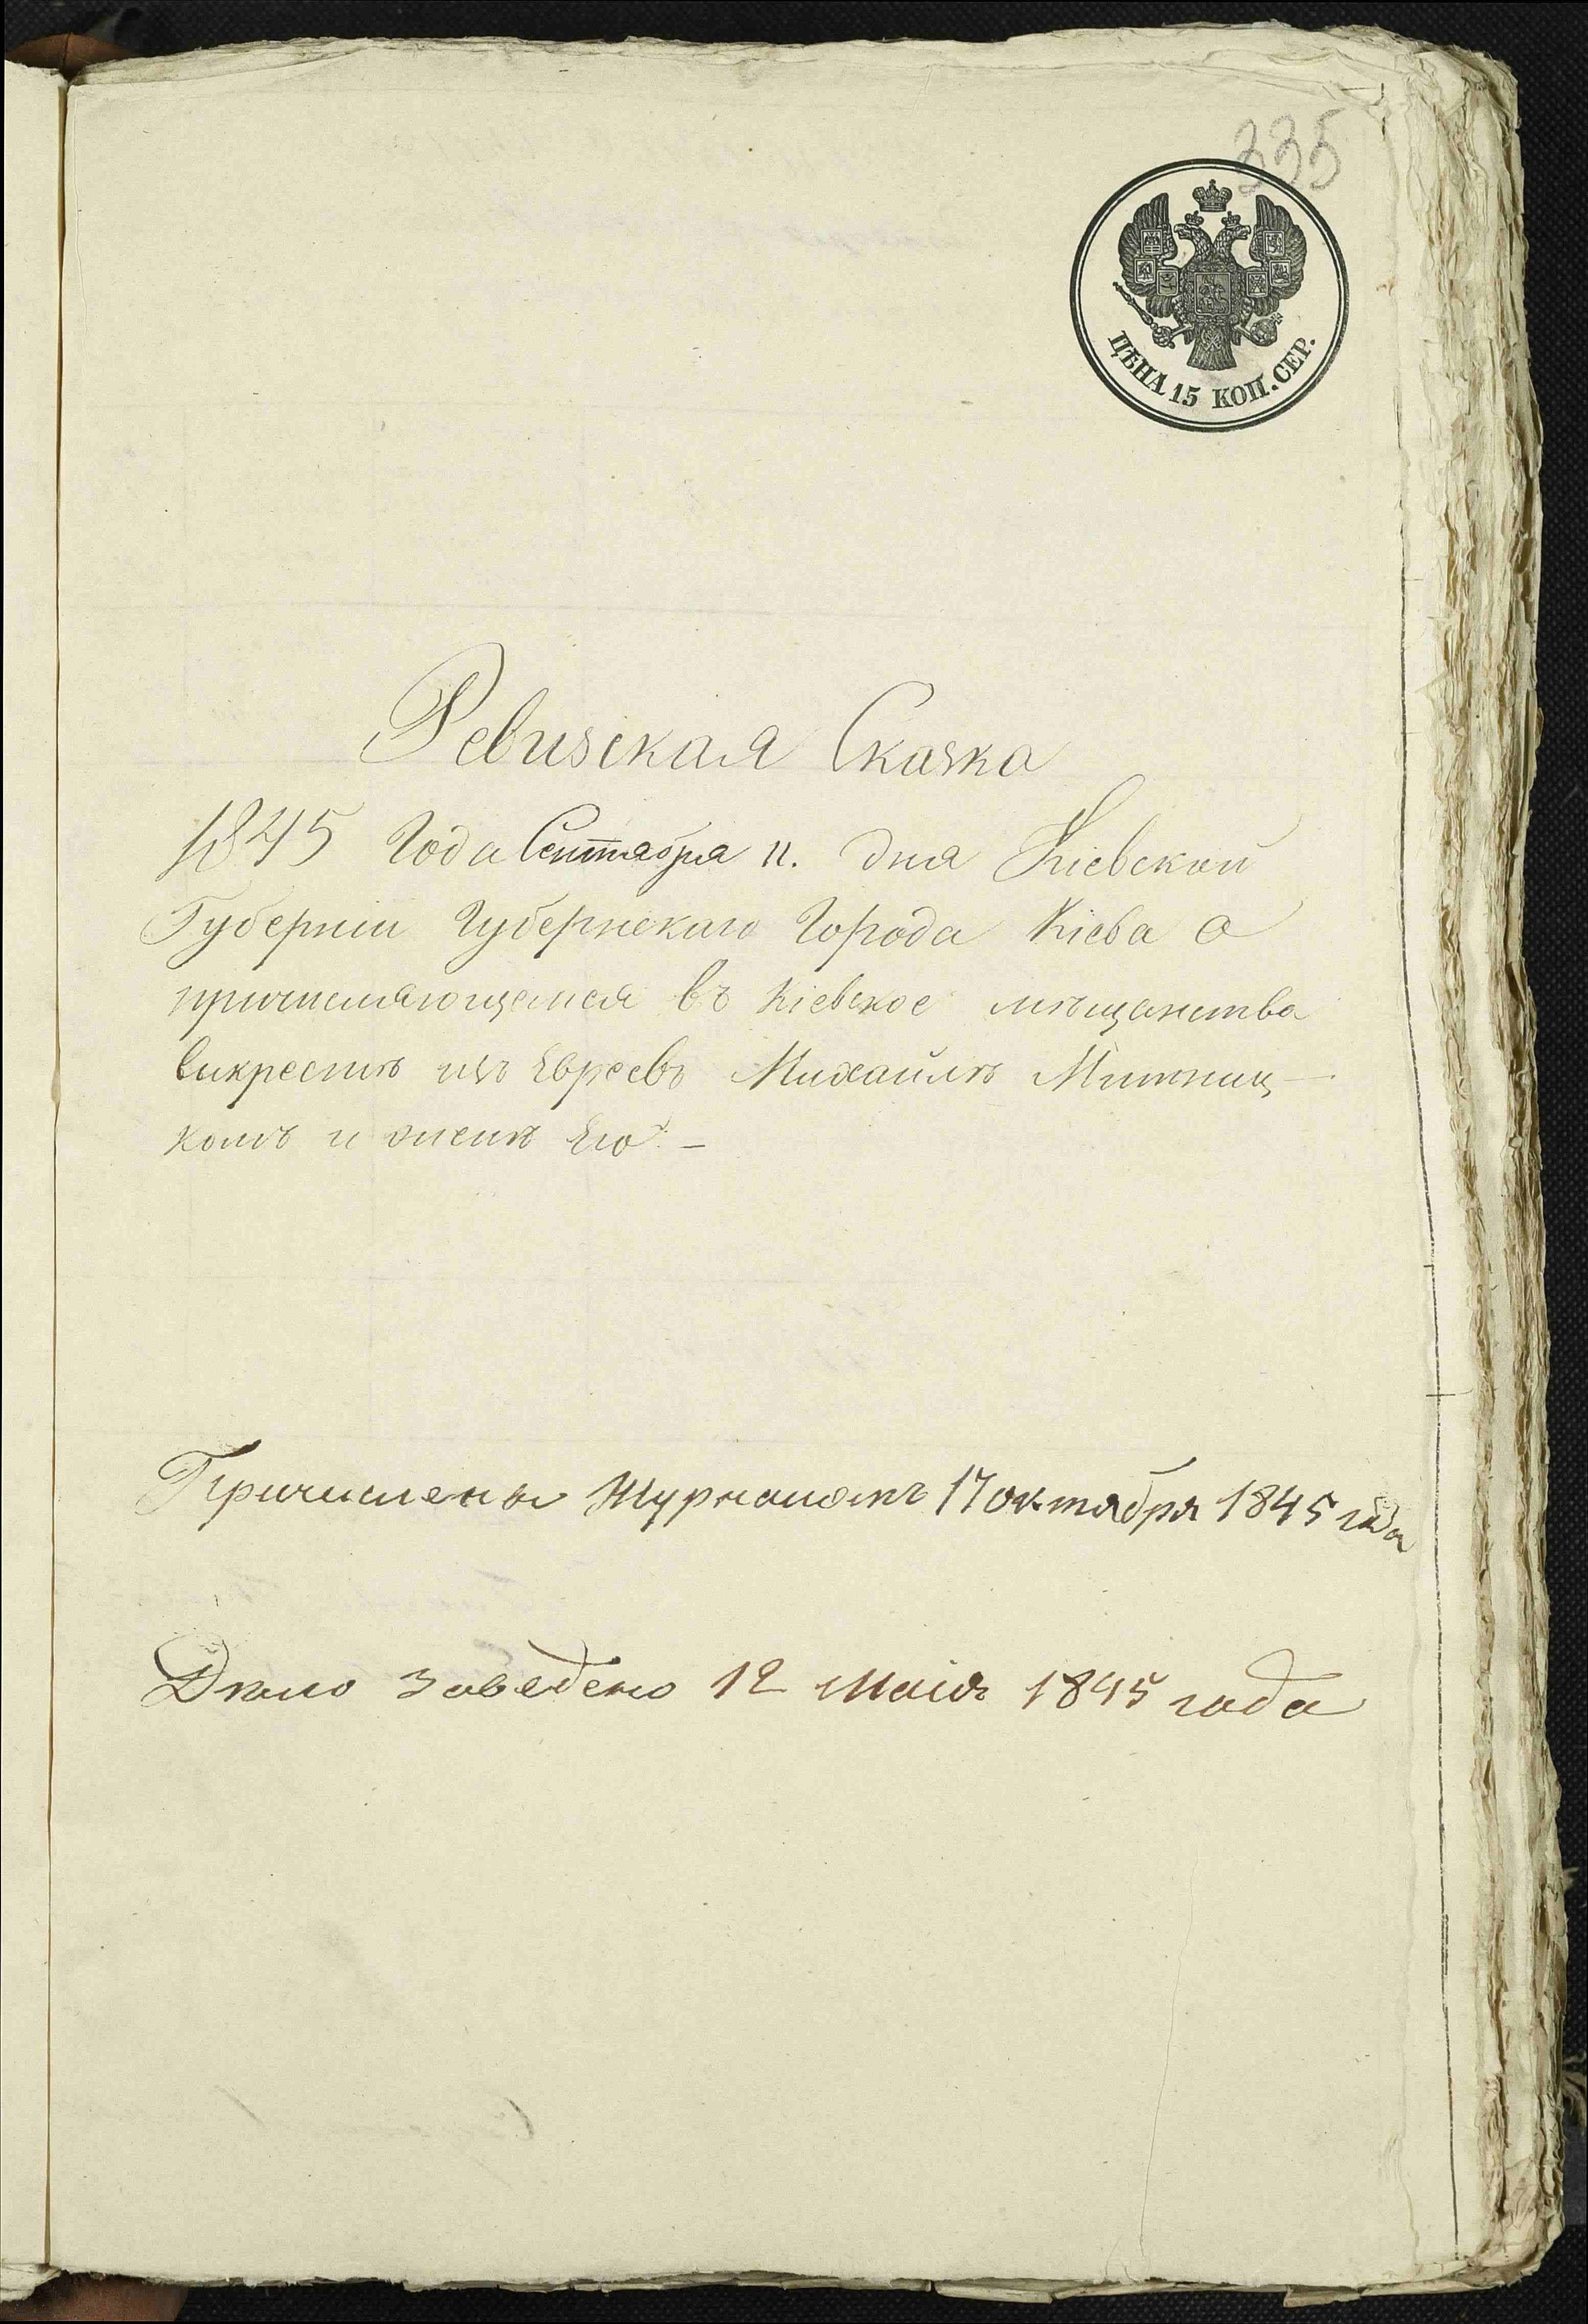 335
ЦѢНА 15 КОП. СЕР.
Ревизская Сказка
1845 Года Сентября 11. дня Кіевской
Губерніи Губернскаго Города Кіева о
причисляющемся въ Кіевское мѣщанства
викрестѣ изъ Евреевъ Михайлѣ Митниц-
комъ и женѣ Его. –
Причислены Журналомъ 17 октября 1845 года
Дѣло заведено 12 Маія 1845 года